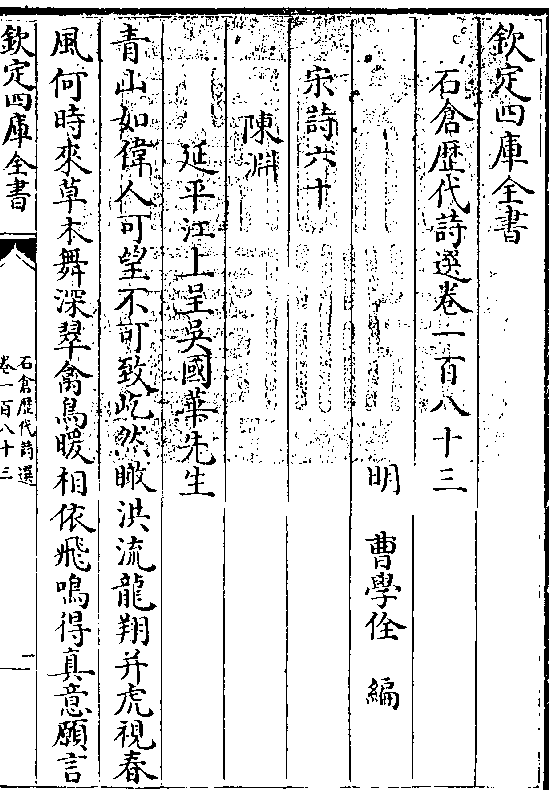 欽定四庫全書
石倉歴代詩選巻一百八十三
明 曹學佺 編
宋詩六十
陳淵
延平江上呈吳國華先生
青山如偉人可望不可致屹然瞰洪流龍翔并虎視春
風何時來草木舞深翠禽鳥暖相依飛鳴得真意願言
欽定四庫全書
石倉歴代詩選
卷一百八十三
一